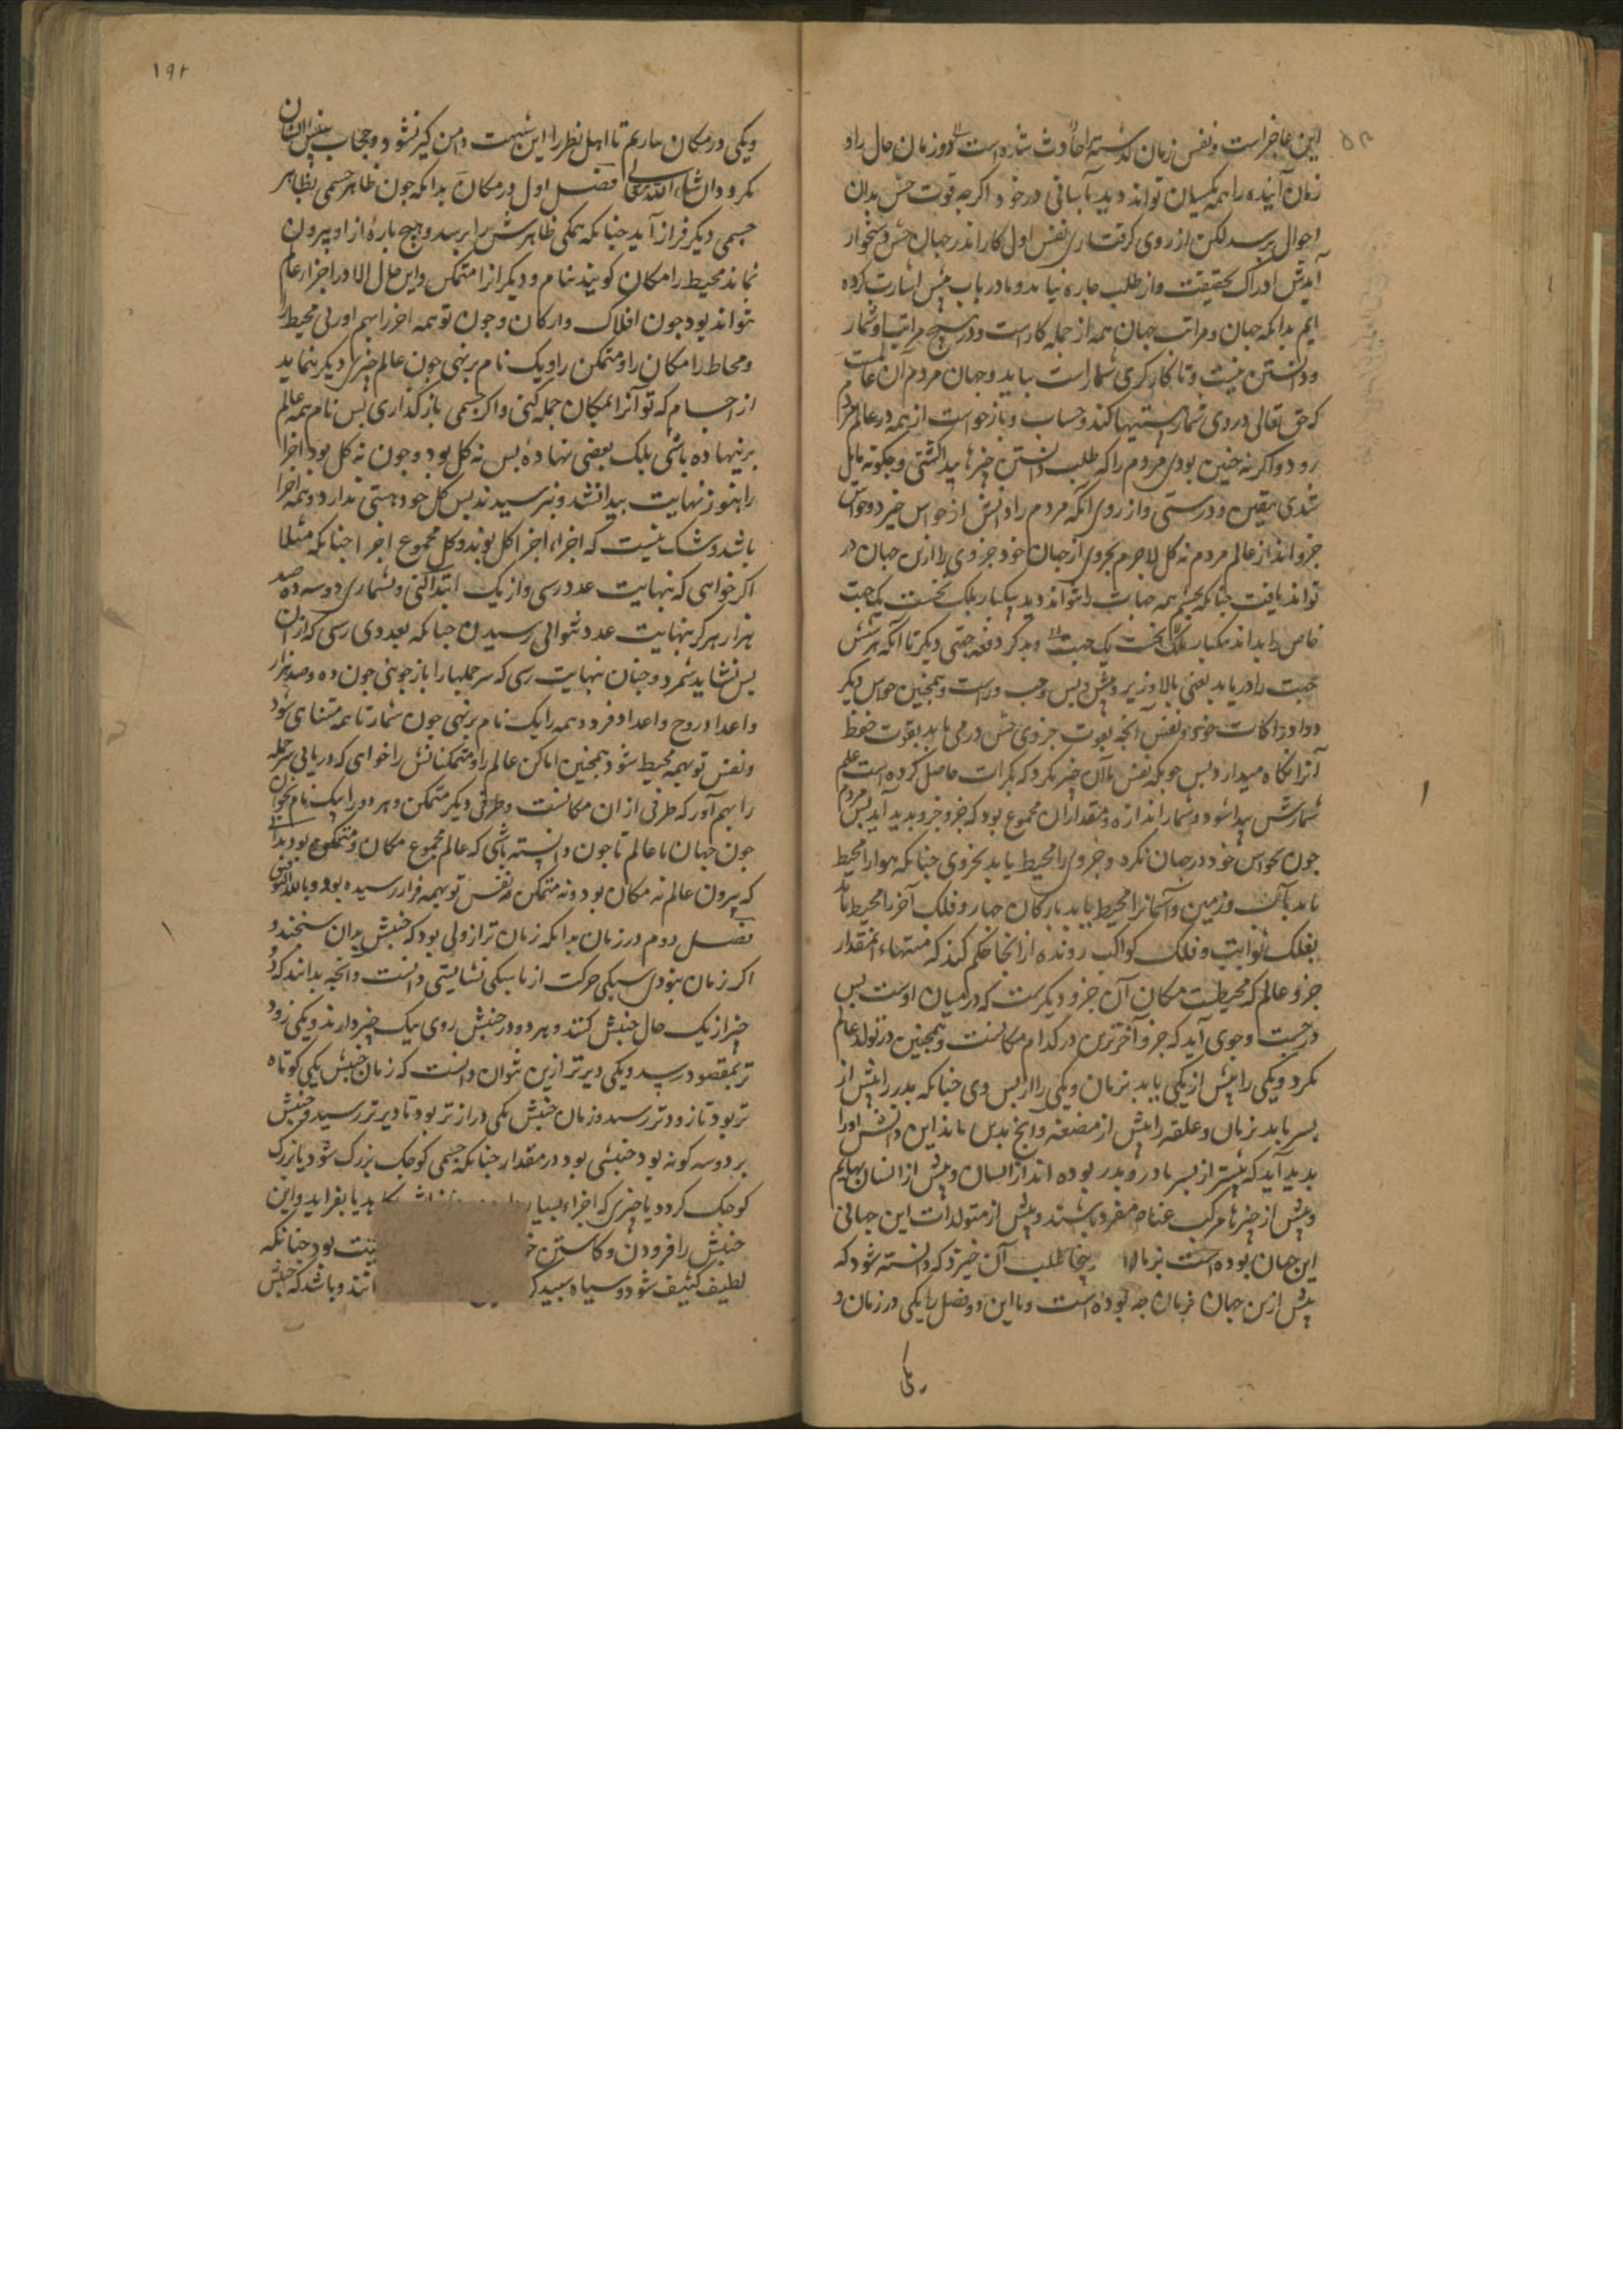 این عاجز است و نفس زمان گذشته را حادث شده است و در زمان حال را و
زمان آینده را همه یکسان تواند دید بآسانی در خود اگرچه قوت حس بدان
احوال نرسد لکن از روی گرفتاری نفس اول کار اندر جهان حس دشخوار
آیدش ادراک بحقیقت و از طلب چاره نیابد و ما در باب پیش اشارت کرده
ایم بدانکه جهان و مراتب جهان همه از جمله کار است و در هیچ مراتب او شمار
و دانستن نیست و تا کارکری شمار است بباید و جهان مردم آن عالمست
که حق تعالی در وی شمار هستیها کند و حساب و بازخواست از همه در عالم مردم
رود و اگر نه چنین بودی مردم را که طلب دانستن چیزها پیدا گشتی و چگونه مایل
شدی بیقین و درستی و از روی آنکه مردم را دانش از حواس خیزد و حواس
جزو اند از عالم مردم نه کل لاجرم بجزوی از جهان خود جزوی را ازین جهان در
تواند یافت چنانکه بچشم همه جهات را نتواند دید بیکبار بلک نخست یک جهت
خاص را بداند بیکبار بلک نخست یک جهت و بدگر دفعه جهتی دیگر تا آنکه هر شش
جهت را دریابد یعنی بالا و زیر و پیش و پس و چپ و راست و همچنین حواس دیگر
و ادراکات خود و نفس آنچه بقوت جزوی حس درمی یابد بقوت حفظ
آنرا نگاه میدارد پس چونکه نفس با آن چیز نگرد که بکرات حاصل کرده است علم
شمارش پیدا شود و شمار اندازه و مقدار آن مجموع بود که جزو جزو بدید آید پس مردم
چون بحواس خود در جهان نگرد و جزوی را محیط یابد بجزوی چنانکه هوا را محیط
یابد بآب و زمین و آسمانرا محیط یابد بارکان چهار و فلک آخر را محیط یابد
بفلک ثوابت و فلک کواکب رونده از انجا حکم کند که منتهاء آنمقدار
جزو عالم که محیطست مکان آن جزو دیگرست که در میان اوست پس
در جست و جوی آید که جزو آخرترین در کدام مکانست و همچنین در تولد عالم
نگرد و یکی را پیش از یکی یابد بزمان و یکی را از پس وی چنانکه پدر را پیش از
پسر یابد بزمان و علقه را پیش از مضغه و آنچ بدین ماند این دانش او را
بدید آید که پیشتر از پسر مادر و پدر بوده اند از انسان و پیش از انسان بهایم
و پیش از چیزها مرکب عناصر مفرد باشند و پیش از متولدات این جهانی
این جهان بوده است بزمان ازینجا طلب آن خیزد که دانسته شود که
پیش ازین جهان زمان چه بوده است و ما این دو فصل را یکی در زمان و
۱۹۲
ویکی در مکان بیاریم تا اهل نظر را این شبهت دامن گیر نشود و حجاب نفس ایشان
نگردد ان شاء الله تعالی فصل اول در مکان بدانکه چون ظاهر جسمی بظاهر
جسمی دیگر فراز آید چنانکه همگی ظاهرش را برسد و هیچ پارهٔ از او بیرون
نماند محیط را مکان گویند بنام و دیگر را متمکن و این حال الا در اجزاء عالم
نتواند بود چون افلاک و ارکان و چون تو همه اجزا را بهم آوری محیط را
و محاط را مکان را و متمکن را و یک نام بر نهی چون عالم چیزی دیگر بنماید
از اجسام که تو آنرا بمکان جمله کنی و اگر جسمی باز گذاری پس نام همه عالم
بر ننهاده باشی بلک بعضی نهادهٔ پس نه کل بود و چون نه کل بود اجزا
را هنوز نهایت پیدا نشد و نرسید پس کل خود هستی ندارد و همه اجزا
باشد و شک نیست که اجزاء اجزا کل بوند و کل مجموع اجزا چنانکه مثلا
اگر خواهی که بنهایت عدد رسی و از یک ابتدا کنی و بشماری دو سه ده صد
هزار هرگز بنهایت عدد نتوانی رسیدن چنانکه بعددی رسی که از آن
پس نشاید شمرد و چنان بنهایت رسی که سر جملها را باز جویی چون ده و صد و هزار
و اعداد زوج و اعداد فرد و همه را یک نام بر نهی چون شمار تا همه متناهی شود
و نفس تو بهمه محیط شود همچنین اماکن عالم را و متمکناتش را خواهی که دریابی سر جمله
را بهم آور که طرفی از آن مکانست و طرفی دیگر متمکن و هر دو را یک نام بخوان
چون جهان یا عالم تا چون دانسته باشی که عالم مجموع مکان و متمکن بود بدانی
که بیرون عالم نه مکان بود و نه متمکن و نفس تو بهمه فراز رسیده بود و بالله التوفیق
فصل دوم در زمان بدانکه زمان ترازوی بود که جنبش بدان سنجند و
اگر زمان نبودی سبکی حرکت از ناسبکی نشایستی دانست و آنچه بدانند که دو
چیز از یک حال جنبش کنند و هر دو در جنبش روی بیک چیز دارند و یکی زود
تر بمقصود رسد و یکی دیرتر ازین بتوان دانست که زمان جنبش یکی کوتاه
تر بود تا زودتر رسد و زمان جنبش یکی درازتر بود تا دیرتر رسید و جنبش
بر دو سه گونه بود جنبشی بود در مقدار چنانکه جسمی کوچک بزرگ شود یا بزرگ
کوچک گردد یا چیزی که اجزاء بسیار یا بفزاید و این
جنبش را فزودن و کاستن بود چنانکه
لطیف کثیف شود و سیاه سپید و باشد که جنبش